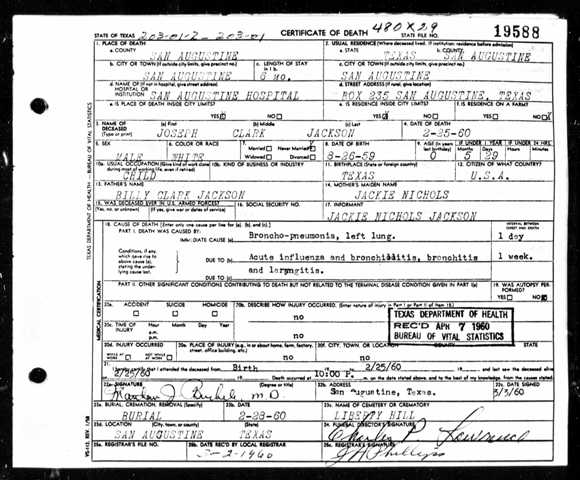 203-01-2 - 203-01
480X29
STATE OF TEXAS
CERTIFICATE OF DEATH
STATE FILE NO.
19588
1. PLACE OF DEATH
a. COUNTY
SAN AUGUSTINE
2. USUAL RESIDENCE (Where deceased lived. If institution: residence before admission)
a. STATE
TEXAS
b. COUNTY
SAN AUGUSTINE
b. CITY OR TOWN (If outside city limits, give precinct no.)
SAN AUGUSTINE
c. LENGTH OF STAY in 1 b.
6 mo.
c. CITY OR TOWN (If outside city limits, give precinct no.)
SAN AUGUSTINE
d. NAME OF (If not in hospital, give street address) HOSPITAL OR INSTITUTION
SAN AUGUSTINE HOSPITAL
d. STREET ADDRESS (If rural, give location)
BOX 235 SAN AUGUSTINE, TEXAS
e. IS PLACE OF DEATH INSIDE CITY LIMITS?
YES NO
e. IS RESIDENCE INSIDE CITY LIMITS?
YES NO
f. IS RESIDENCE ON A FARM?
YES NO
3. NAME OF DECEASED (Type or print)
(a) First
JOSEPH
(b) Middle
CLARK
(c) Last
JACKSON
4. DATE OF DEATH
2-25-60
5. SEX
MALE
6. COLOR OR RACE
WHITE
7.
Married Never Married
Widowed Divorced
8. DATE OF BIRTH
8-26-59
9. AGE (In years last birthday)
0
IF UNDER 1 YEAR
Months
5
Days
29
IF UNDER 24 HRS.
Hours Min.
10a. USUAL OCCUPATION (Give kind of work done during most of working life, even if retired)
CHILD
10b. KIND OF BUSINESS OR INDUSTRY
11. BIRTHPLACE (State or foreign country)
TEXAS
12. CITIZEN OF WHAT COUNTRY?
U.S.A.
13. FATHER'S NAME
BILLY CLARK JACKSON
14. MOTHER'S MAIDEN NAME
JACKIE NICHOLS
15. WAS DECEASED EVER IN U.S. ARMED FORCES?
(Yes, no, or unknown) (If yes, give war or dates of service)
16. SOCIAL SECURITY NO.
17. INFORMANT
JACKIE NICHOLS JACKSON
18. CAUSE OF DEATH [Enter only one cause per line for (a), (b), and (c).]
INTERVAL BETWEEN ONSET AND DEATH
PART I. DEATH WAS CAUSED BY:
IMMEDIATE CAUSE (a)
Broncho-pneumonia, left lung.
1 day
Conditions, if any, which gave rise to above cause (a), stating the underlying cause last.
DUE TO (b)
Acute influenza and bronchiolitis, bronchitis
1 week.
DUE TO (c)
and laryngitis.
PART II. OTHER SIGNIFICANT CONDITIONS CONTRIBUTING TO DEATH BUT NOT RELATED TO THE TERMINAL DISEASE CONDITION GIVEN IN PART I(a)
19. WAS AUTOPSY PERFORMED?
YES NO
20a. ACCIDENT SUICIDE HOMICIDE
20b. DESCRIBE HOW INJURY OCCURRED. (Enter nature of injury in Part I or Part II of item 18.)
no
20c. TIME OF INJURY
Hour Month Day Year
a.m.
p.m.
no
TEXAS DEPARTMENT OF HEALTH
REC'D APR 7 1960
BUREAU OF VITAL STATISTICS
20d. INJURY OCCURRED
WHILE AT WORK NOT WHILE AT WORK
20e. PLACE OF INJURY (e.g. in or about home, farm, factory, street, office building, etc.)
no
20f. CITY, TOWN, OR LOCATION
no
COUNTY STATE
21. I hereby certify that I attended the deceased from
Birth
19
to
2/25/60
19
and last saw the deceased alive
2/25/60
19
Death occurred at
10:00 P.
m., on the date stated above; and to the best of my knowledge, from the causes stated
22a. SIGNATURE
(Degree or title)
M.D.
22b. ADDRESS
San Augustine, Texas.
22c. DATE SIGNED
3/3/60
23a. BURIAL, CREMATION, REMOVAL (Specify)
BURIAL
23b. DATE
2-28-60
23c. NAME OF CEMETERY OR CREMATORY
LIBERTY HILL
23d. LOCATION (City, town, or county) (State)
SAN AUGUSTINE TEXAS
24. FUNERAL DIRECTOR'S SIGNATURE
Charles P.
25a. REGISTRAR'S FILE NO.
25b. DATE REC'D BY LOCAL REGISTRAR
3-2-1960
25c. REGISTRAR'S SIGNATURE
J H Phillips
TEXAS DEPARTMENT OF HEALTH—BUREAU OF VITAL STATISTICS
MEDICAL CERTIFICATION